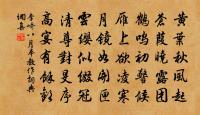 黃葉秋風起
蒼葭曉露團
鶴鳴初警候
雁上欲凌寒
月鏡如開匣
雲纓似綴冠
清尊對旻序
高宴有餘歡
李嶠八月奉教作詞典
網